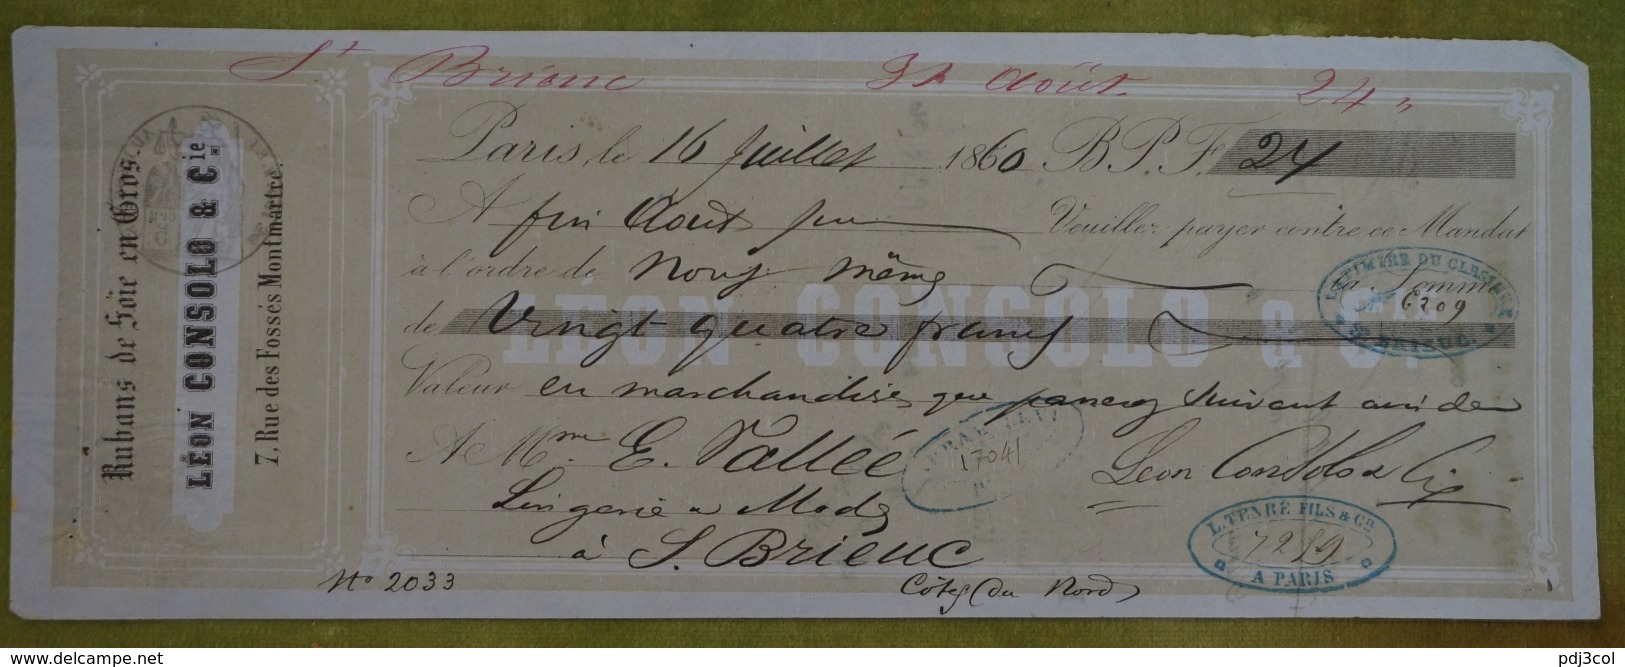 St Brieuc 31 Août 24 "
Rubans de Soie en Gros.
LÉON CONSOLO & Cie
7, Rue des Fossés Montmartre.
Paris, le 16 Juillet 1860 B.P.F. 24
A fin Aout prx Veuillez payer contre ce Mandat
à l'ordre de Nous même la Somme
de Vingt quatre francs
LÉON CONSOLO & Cie
Valeur en marchandises que passerez suivant avis de
A Mme E. Vallée Léon Consolo & Cie
Lingerie & Modes
à S. Brieuc
Côtes (du Nord)
No 2033
6209
ST BRIEUC.
17041
L. TENRÉ FILS & CIE.
7259
A PARIS
www.delcampe.net
pdj3col